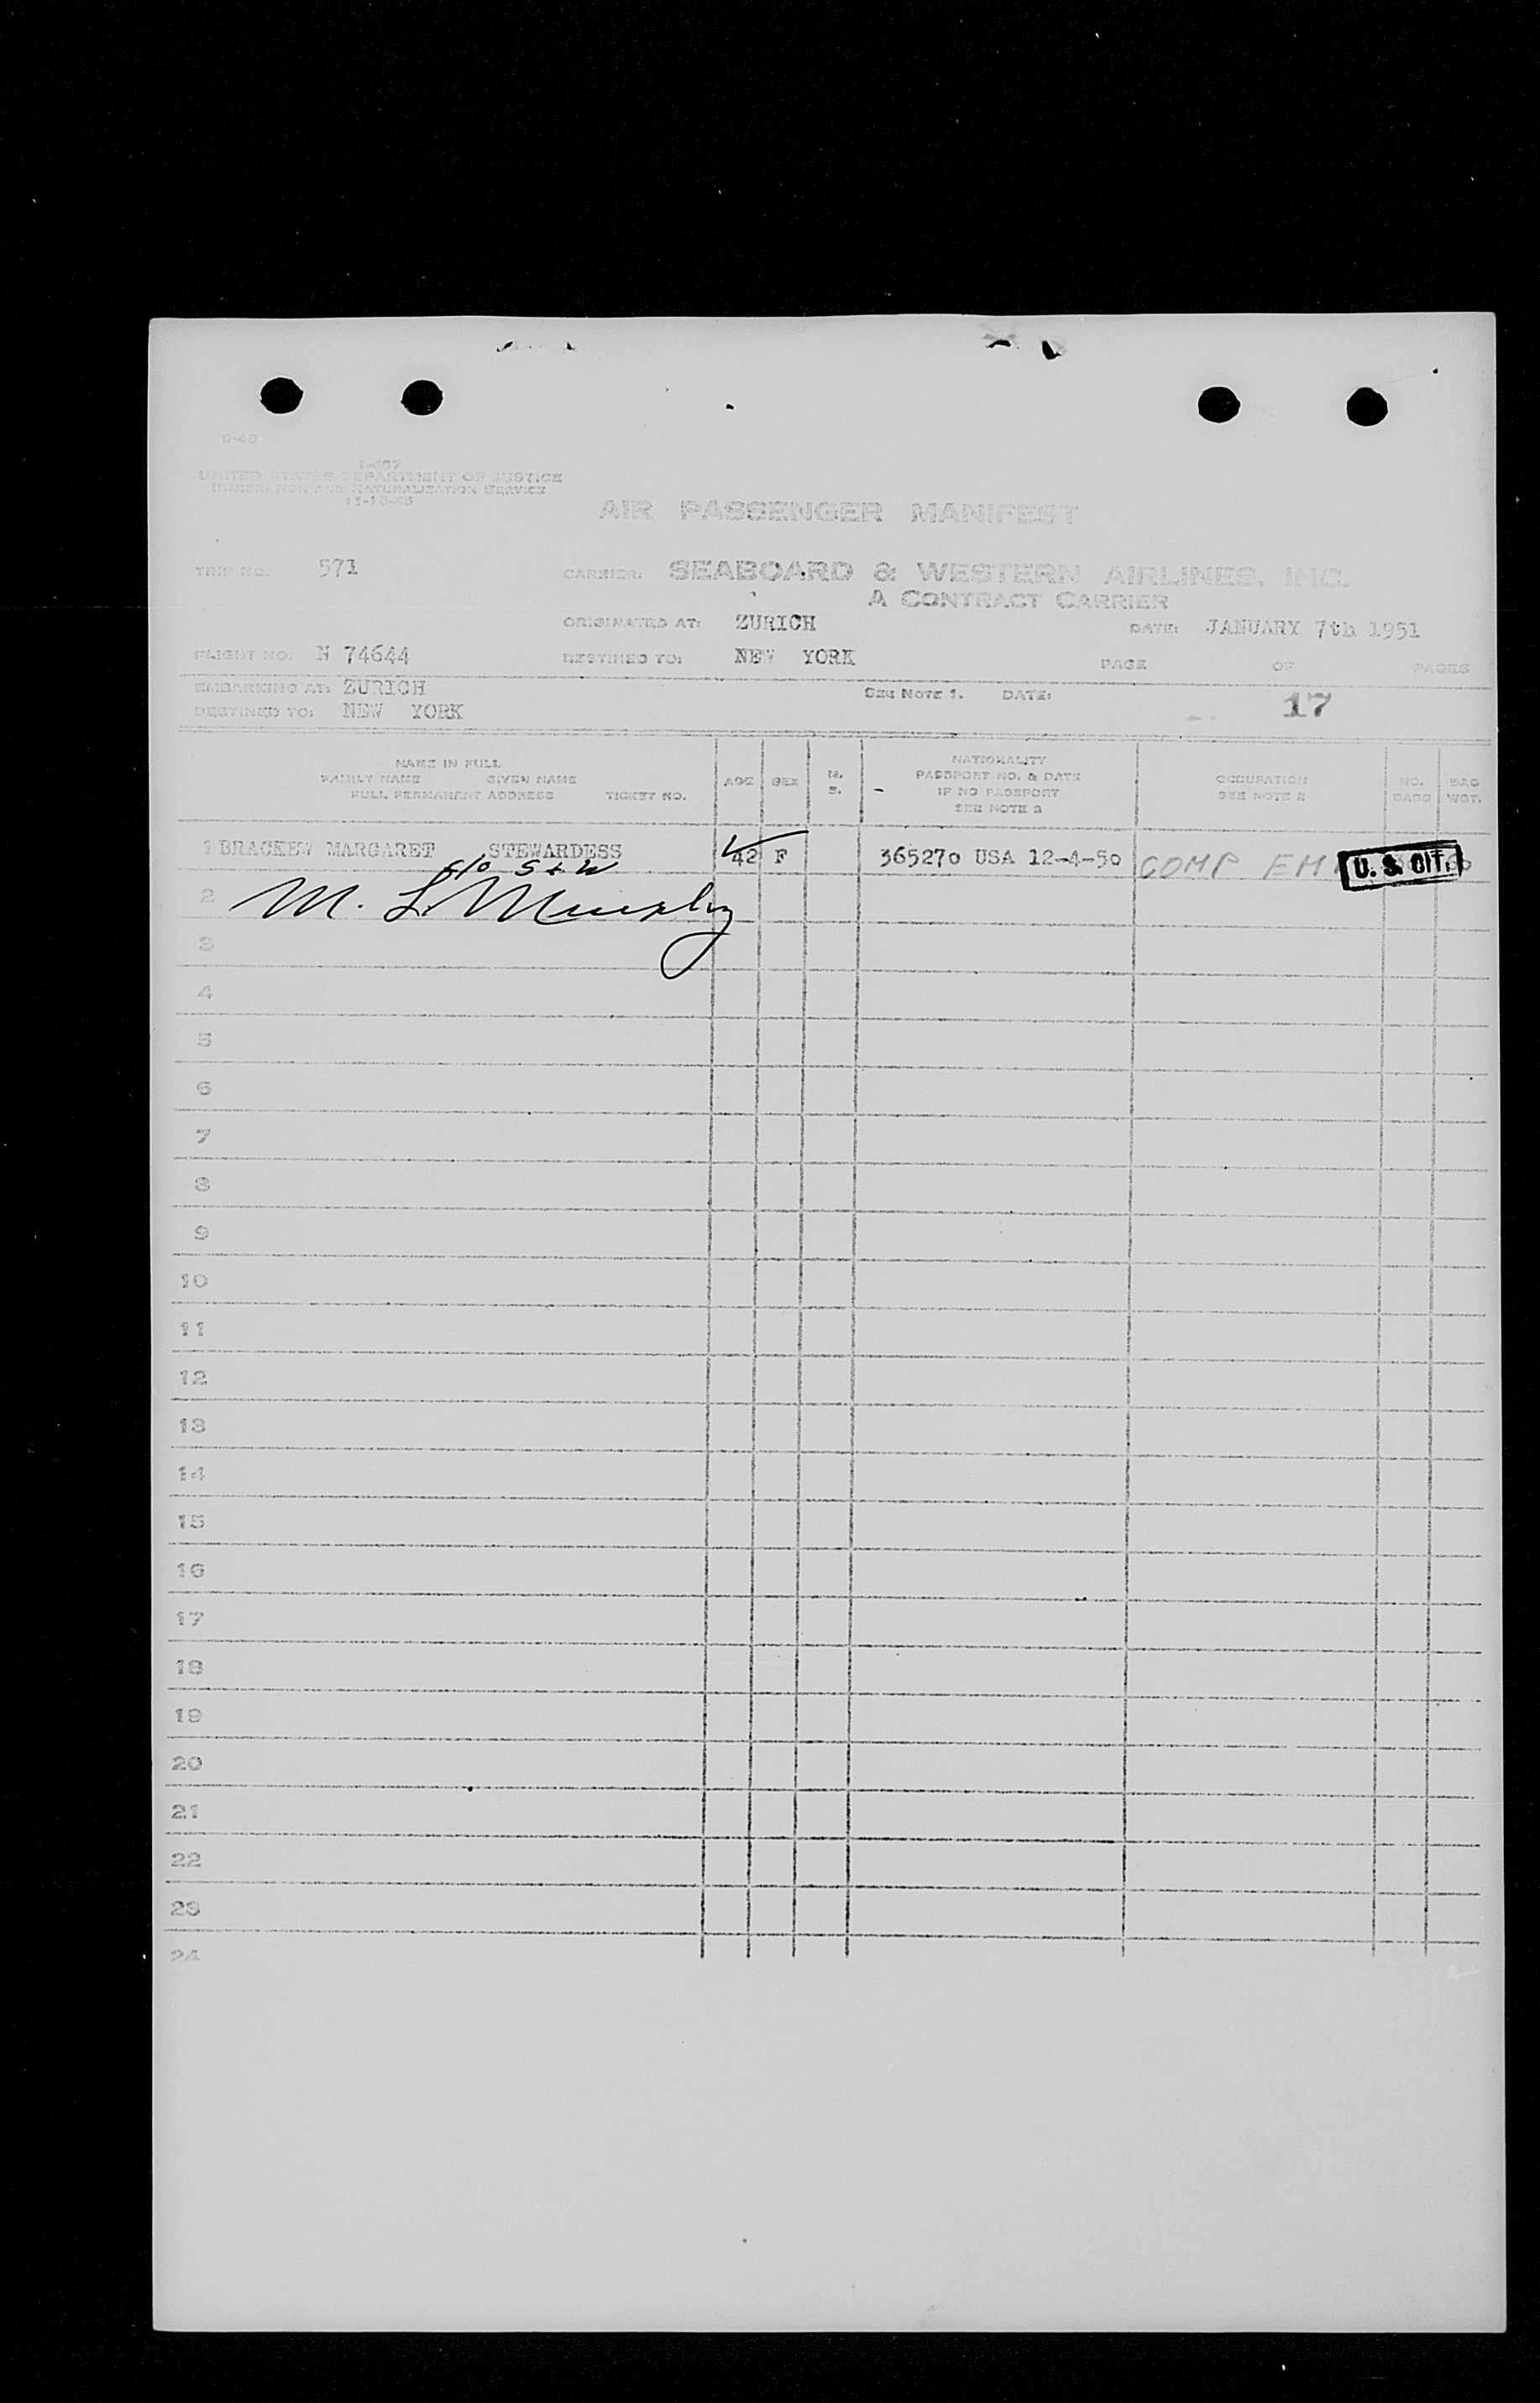 I-467
UNITED STATES DEPARTMENT OF JUSTICE
IMMIGRATION AND NATURALIZATION SERVICE
AIR PASSENGER MANIFEST
TRIP NO. 571 CARRIER: SEABOARD & WESTERN AIRLINES, INC.
A CONTRACT CARRIER
ORIGINATED AT: ZURICH DATE: JANUARY 7th 1951
FLIGHT NO. N 74644 DESTINED TO: NEW YORK PAGE OF PAGES
EMBARKING AT: ZURICH SEE NOTE 1. DATE:
DESTINED TO: NEW YORK 17
NAME IN FULL
FAMILY NAME GIVEN NAME
FULL PERMANENT ADDRESS TICKET NO.
AGE
SEX
M.
S.
NATIONALITY
PASSPORT NO. & DATE
IF NO PASSPORT
SEE NOTE 3
OCCUPATION
SEE NOTE 2
NO.
BAGS
BAG
WGT.
1 BRACKEW MARGARET STEWARDESS 42 F 365270 USA 12-4-50 COMP EM U. S. CIT.
c/o S & W
2 M. L. Murphy
3
4
5
6
7
8
9
10
11
12
13
14
15
16
17
18
19
20
21
22
23
24